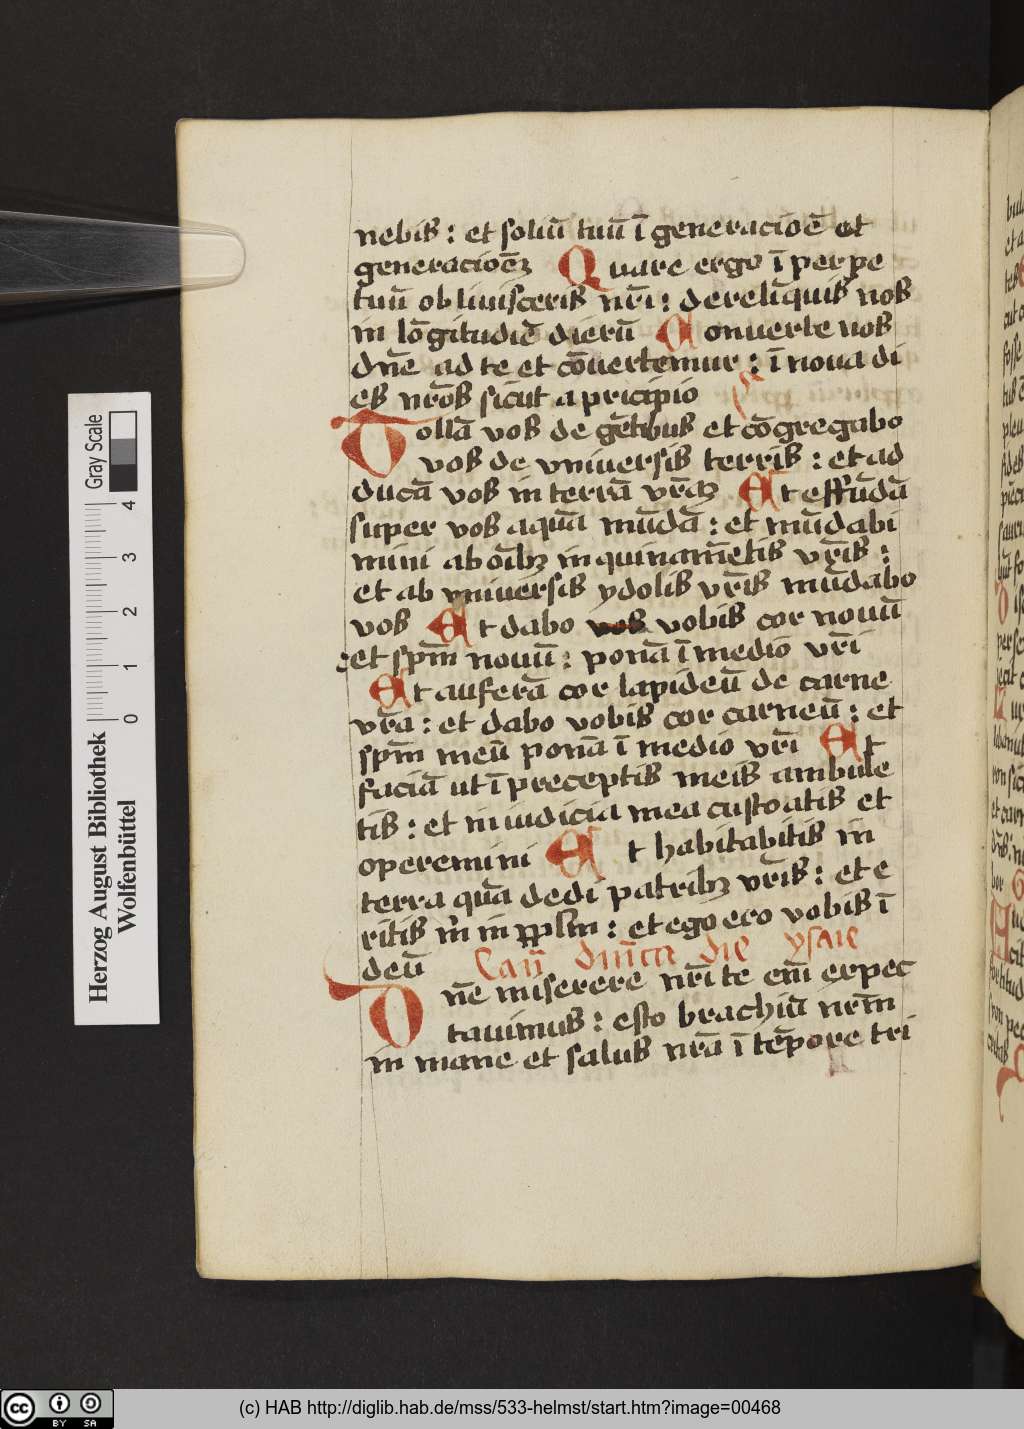 nebis : et soliū tuū ī generacioē et
generacioēꝫ Quare ergo ī perpe
tuū obliuisceris nr̄i : derelīquis nos
in lōgitudiē dierū Conuerte nos
dn̄e ad te et cōuertemur : īnoua di
es nr̄os sicut a pricipio
Tollā vos de gētibus et cōgregabo
vos de vniuersis terris : et ad
ducā vos in terrā vr̄aꝫ Et effūdā
super vos aquā mūdā : et mūdabi
mini ab oīb; inquinamētis vr̄is :
et ab vniuersis ydolis vr̄is mūdabo
vos Et dabo vobis cor nouū
et spm̄ nouū : ponā ī medio vr̄i
Et auferā cor lapideū de carne
vr̄a : et dabo vobis cor carneū : et
spm̄ meū ponā ī medio vr̄i Et
faciā ut ī preceptis meis ambule
tis : et in iudicia mea custoatis et
operemini Et habitabitis in
terra quā dedi patrib; vr̄is : et e
ritis m̄ in ppl̄m : et ego ero vobis ī
deū Cañ dn̄ica die ysaie
Dn̄e miserere nr̄i te em̄ expec
tauimus : esto brachiū nr̄m
in mane et salus nr̄a ī tēpore tri
Gray Scale
0 1 2 3 4
Herzog August Bibliothek
Wolfenbüttel
cc BY SA
(c) HAB http://diglib.hab.de/mss/533-helmst/start.htm?image=00468